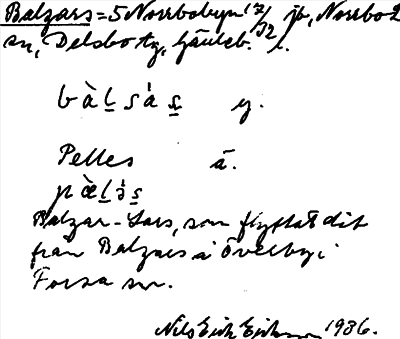 Balzars = 5 Norrbobyn 17/32 jb, Norrbo
sn, Delsbo tg, Gävleb. l.
bàl̲sàs̲ y.
Pelles ä.
pæ̀l̲ə̀s̲
Balzar-Lars, som flyttat dit
från Balzars i Överbyn i
Forsa sn.
Nils Erik Eriksson 1936.